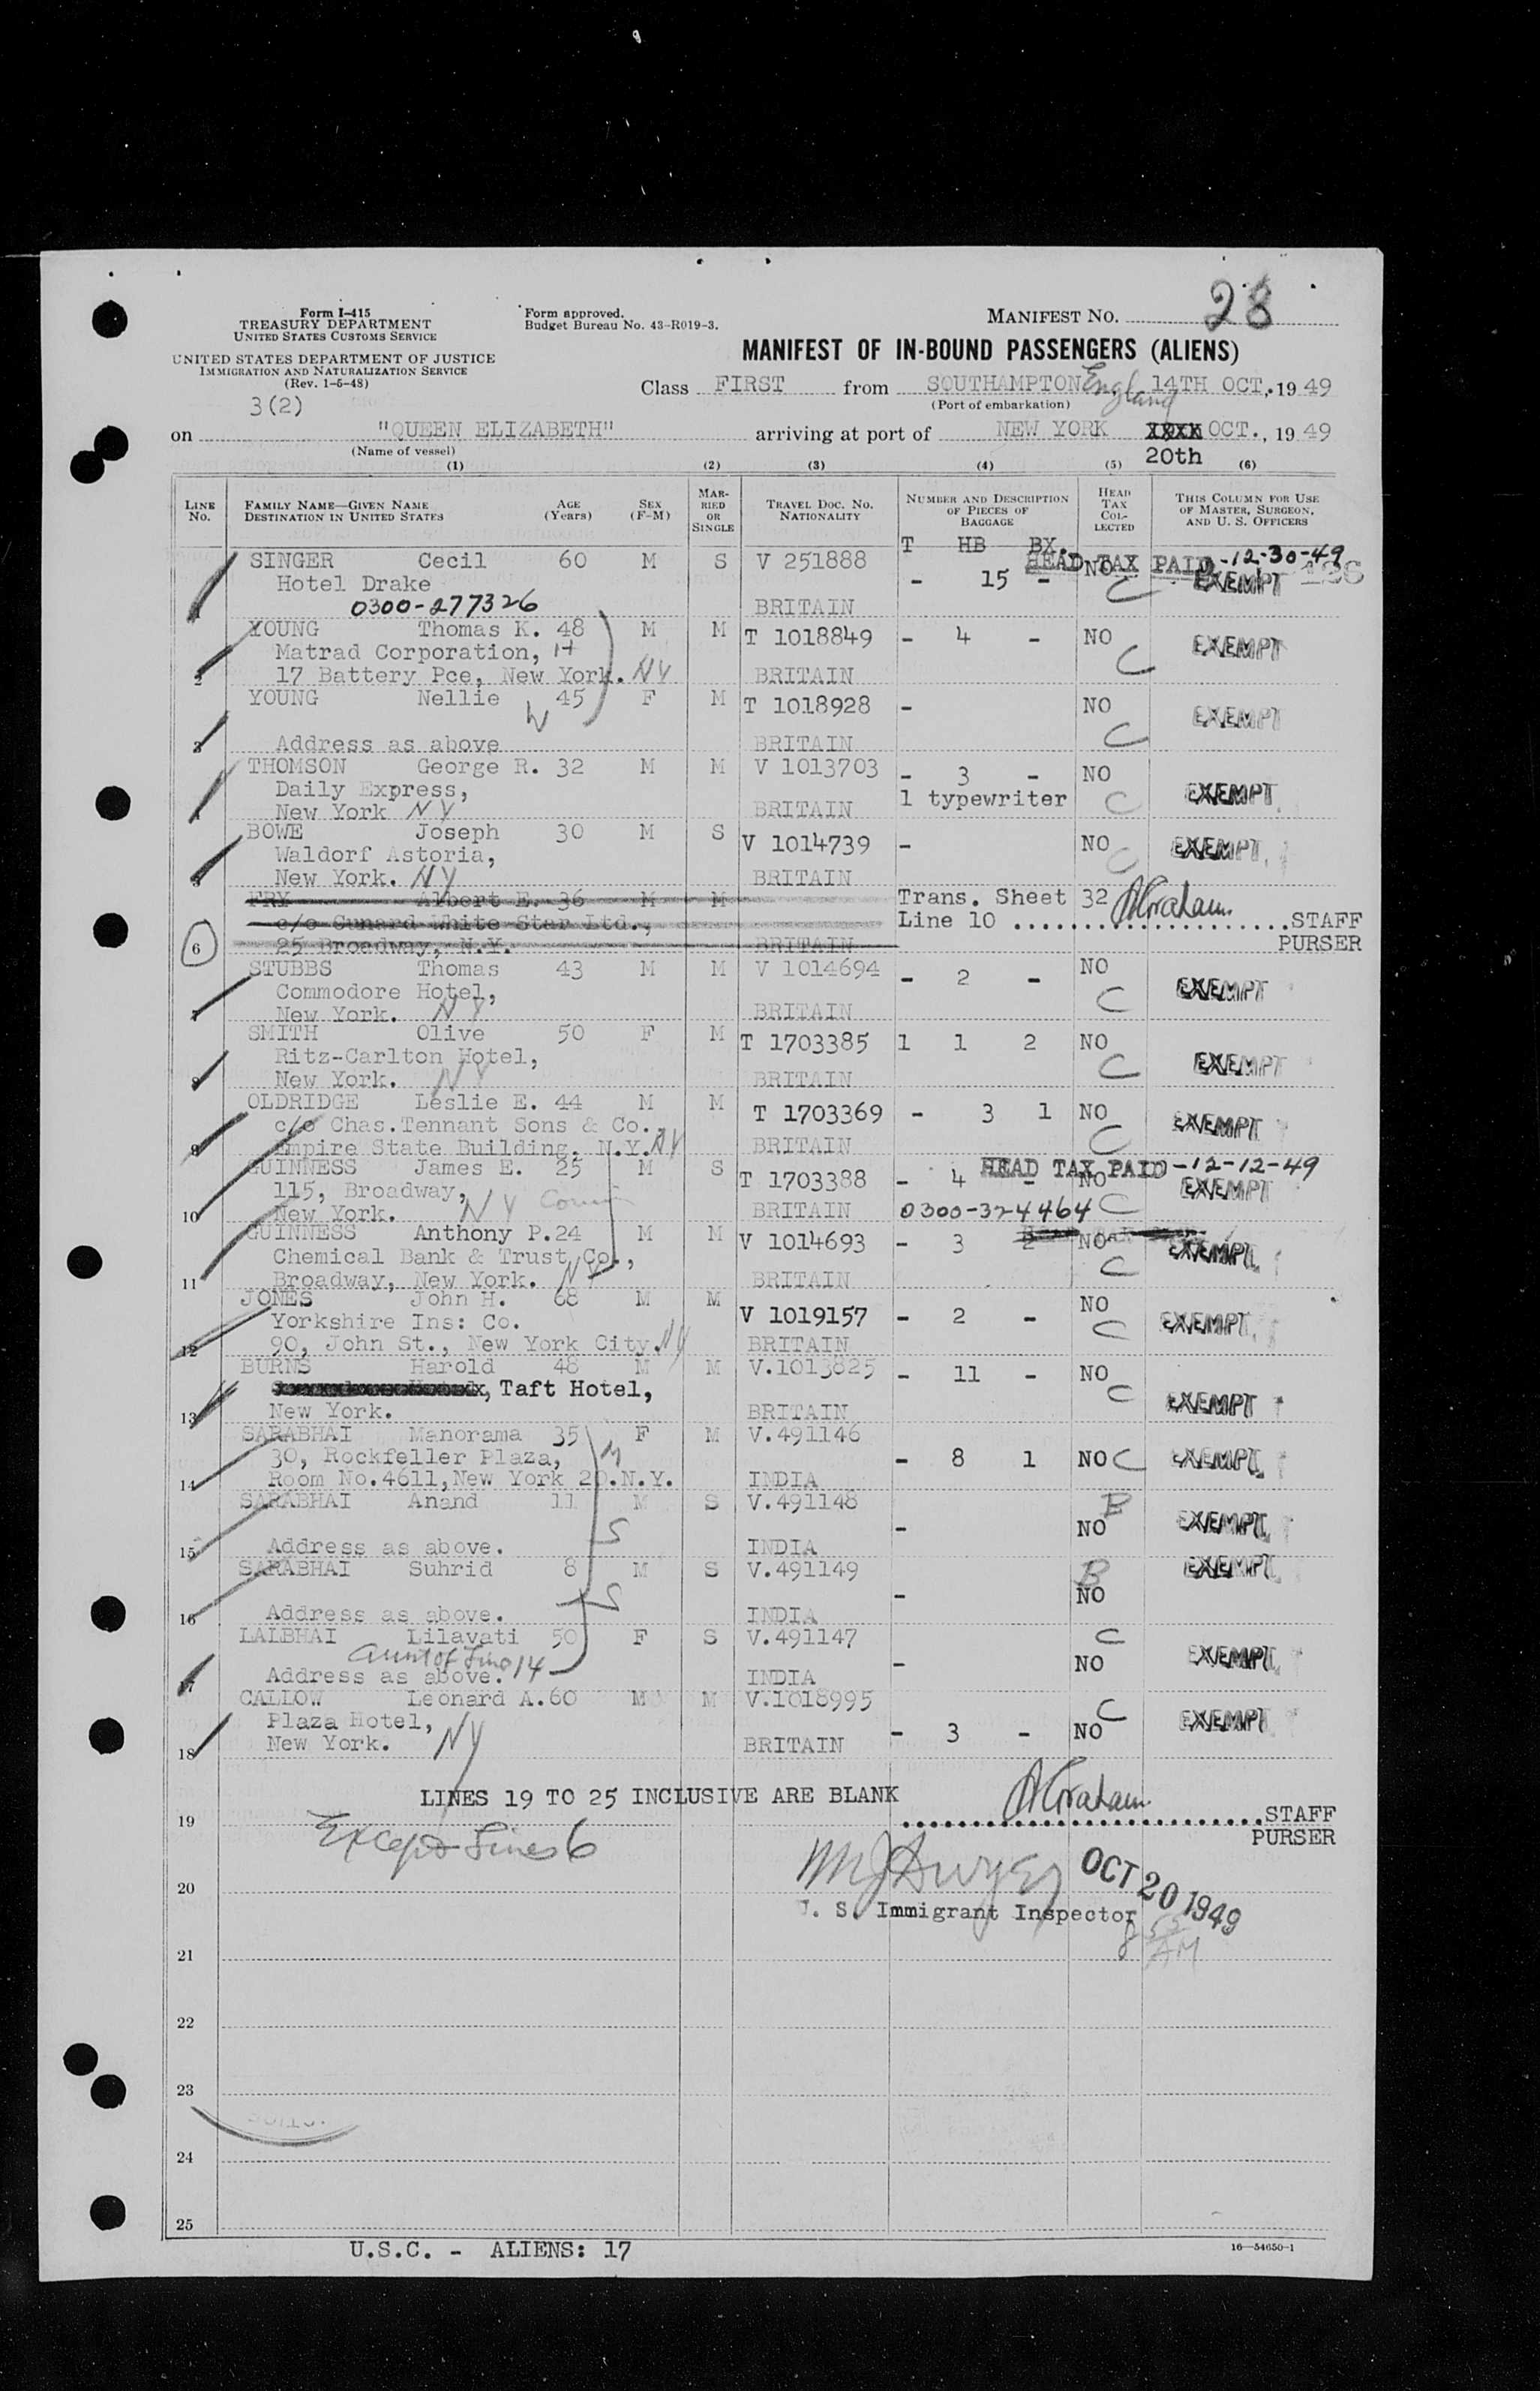 28
Form I-415
TREASURY DEPARTMENT
UNITED STATES CUSTOMS SERVICE
Form approved.
Budget Bureau No. 43-R019-3.
MANIFEST NO.
UNITED STATES DEPARTMENT OF JUSTICE
IMMIGRATION AND NATURALIZATION SERVICE
(Rev. 1-5-48)
MANIFEST OF IN-BOUND PASSENGERS (ALIENS)
3(2)
Class FIRST from SOUTHAMPTON England 14TH OCT., 1949
(Port of embarkation)
on "QUEEN ELIZABETH" arriving at port of NEW YORK OCT., 1949
(Name of vessel)
20th
(1) (2) (3) (4) (5) (6)
LINE No. FAMILY NAME—GIVEN NAME DESTINATION IN UNITED STATES AGE (Years) SEX (F-M) MARRIED OR SINGLE TRAVEL DOC. NO. NATIONALITY NUMBER AND DESCRIPTION OF PIECES OF BAGGAGE HEAD TAX COLLECTED THIS COLUMN FOR USE OF MASTER, SURGEON, AND U. S. OFFICERS
T HB BX.
HEAD TAX PAID -12-30-49
SINGER Cecil 60 M S V 251888 - 15 - NO C EXEMPT
Hotel Drake
0300-277326 BRITAIN
YOUNG Thomas K. 48 M M T 1018849 - 4 - NO C EXEMPT
Matrad Corporation, H
2 17 Battery Pce, New York. NY BRITAIN
YOUNG Nellie W 45 F M T 1018928 - NO C EXEMPT
3 Address as above BRITAIN
THOMSON George R. 32 M M V 1013703 - 3 - NO C EXEMPT
Daily Express, 1 typewriter
New York NY BRITAIN
BOWE Joseph 30 M S V 1014739 - NO C EXEMPT
Waldorf Astoria,
New York. NY BRITAIN
FRY Albert E. 36 M M Trans. Sheet 32 AGraham
c/o Cunard White Star Ltd., Line 10 STAFF
6 25 Broadway, N.Y. BRITAIN PURSER
STUBBS Thomas 43 M M V 1014694 - 2 - NO C EXEMPT
Commodore Hotel,
New York. NY BRITAIN
SMITH Olive 50 F M T 1703385 1 1 2 NO C EXEMPT
Ritz-Carlton Hotel,
New York. NY BRITAIN
OLDRIDGE Leslie E. 44 M M T 1703369 - 3 1 NO C EXEMPT
c/o Chas.Tennant Sons & Co.,
9 Empire State Building, N.Y. NY BRITAIN
HEAD TAX PAID -12-12-49
GUINNESS James E. 25 M S T 1703388 - 4 - NO C EXEMPT
115, Broadway,
10 New York. NY BRITAIN 0300-324464
GUINNESS Anthony P. 24 M M V 1014693 - 3 2 NO C EXEMPT
Chemical Bank & Trust Co.,
11 Broadway, New York. NY BRITAIN
JONES John H. 68 M M V 1019157 - 2 - NO C EXEMPT
Yorkshire Ins: Co.
12 90, John St., New York City. NY BRITAIN
BURNS Harold 48 M M V.1013825 - 11 - NO C EXEMPT
Taft Hotel,
13 New York. BRITAIN
SARABHAI Manorama 35 F M V.491146 - 8 1 NO C EXEMPT
30, Rockfeller Plaza, M
14 Room No.4611,New York 20.N.Y. INDIA
SARABHAI Anand 11 M S V.491148 - NO B EXEMPT
S
15 Address as above. INDIA
SARABHAI Suhrid 8 M S V.491149 - NO B EXEMPT
S
16 Address as above. INDIA
LALBHAI Lilavati 50 F S V.491147 - NO C EXEMPT
Aunt of Line 14
Address as above. INDIA
CALLOW Leonard A. 60 M M V.1018995 - 3 - NO C EXEMPT
Plaza Hotel,
18 New York. NY BRITAIN
LINES 19 TO 25 INCLUSIVE ARE BLANK AGraham
19 STAFF
PURSER
Except Lines 6
MJ Dwyer OCT 20 1949
20
U. S. Immigrant Inspector
AM
21
22
23
24
25
U.S.C. - ALIENS: 17
16—54650-1